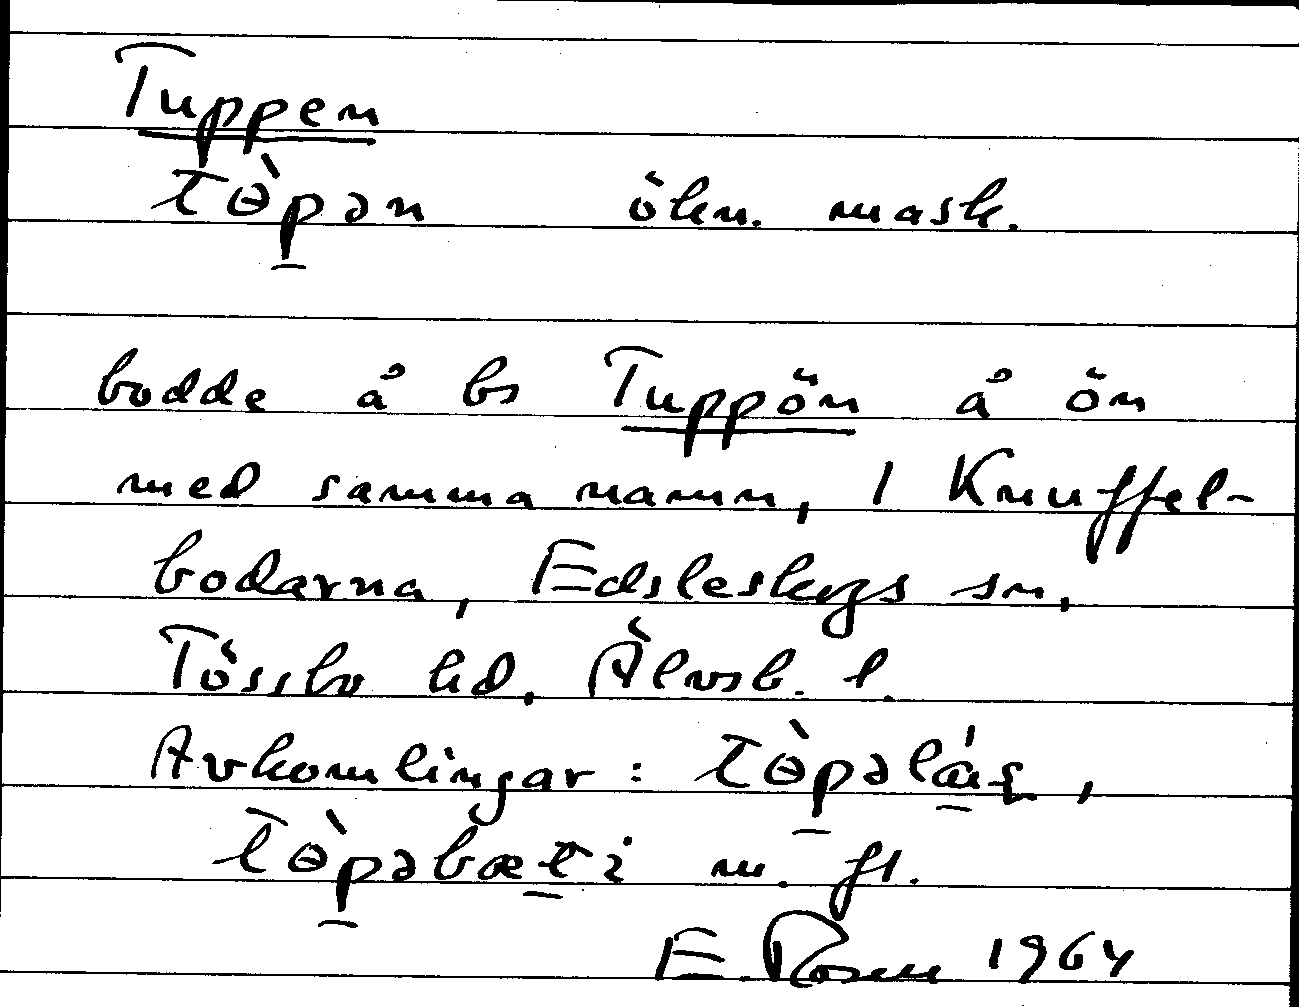 Tuppen
tɵ̀p̱ən ökn. mask.
bodde å bs Tuppön å ön
med samma namn, i Knuffel-
bodarna, Edsleskogs sn,
Tössbo hd, Älvsb. l.
Avkomlingar: tɵ̀p̱əlá̱s,
tɵ̀p̱əbæṯi m. fl.
E. Rosen 1964